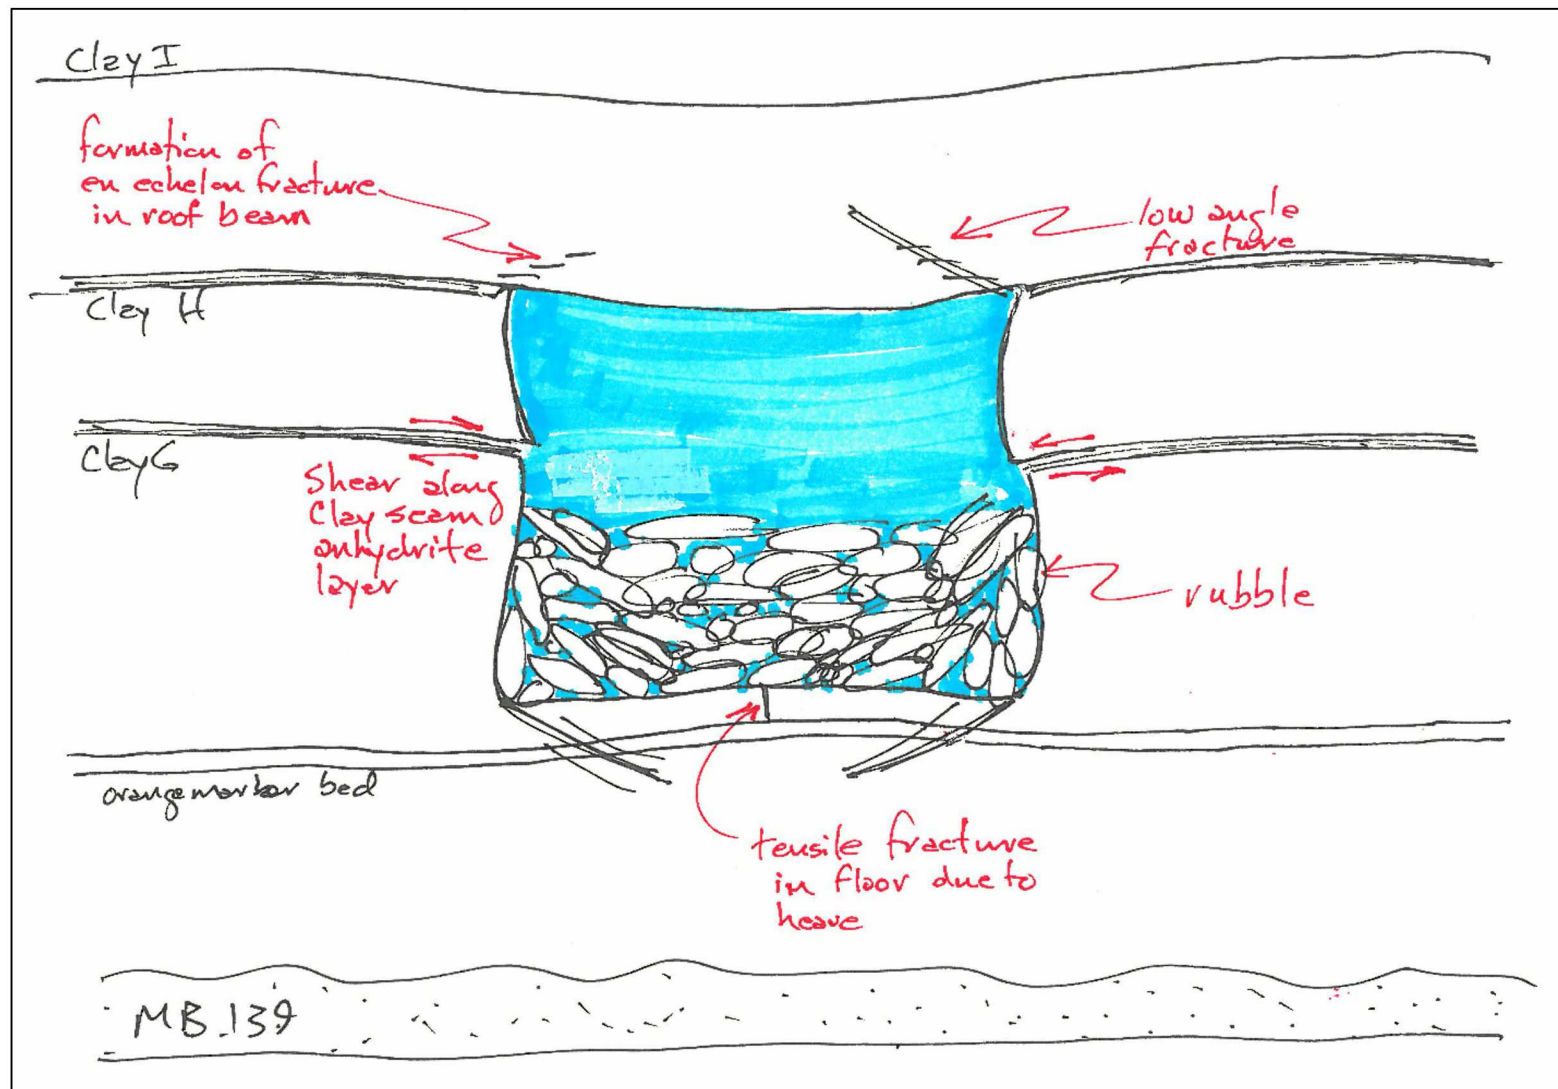 Clay I
formation of
en echelon fracture
in roof beam
low angle
fracture
Clay H
Clay G
Shear along
Clay seam
anhydrite
layer
rubble
orange marker bed
tensile fracture
in floor due to
heave
MB 139